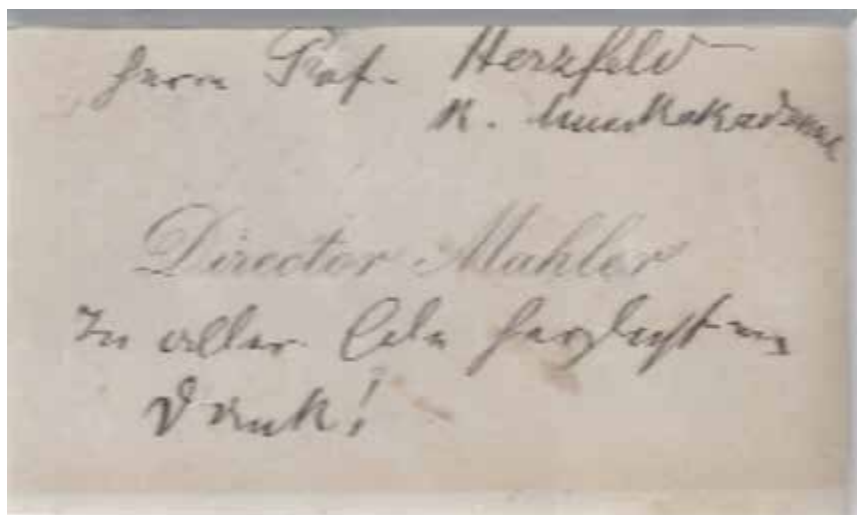 Herrn Prof. Herzfeld
K. Musikakademie
Director Mahler
In aller Eile herzlichsten
Dank!